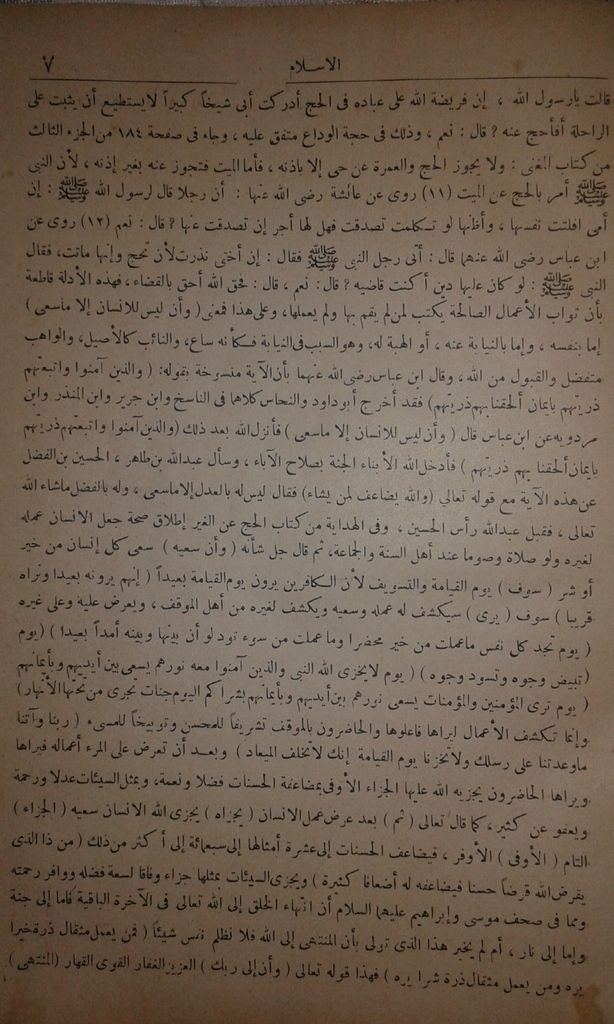 الاسلام
٧
قالت يارسول الله ، إن فريضة الله على عباده فى الحج أدركت أبى شيخاً كبيراً لايستطيع أن يثبت على
الراحلة أفأحج عنه ? قال : نعم ، وذلك فى حجة الوداع متفق عليه ، وجاء فى صفحة ١٨٤ من الجزء الثالث
من كتاب المغنى : ولا يجوز الحج والعمرة عن حى إلا باذنه ، فأما الميت فتجوز عنه بغير إذنه ، لأن النبى
ﷺ أمر بالحج عن الميت (١١) روى عن عائشة رضى الله عنها : أن رجلا قال لرسول الله ﷺ : إن
أمى افلتت نفسها ، وأظنها لو تكلمت تصدقت فهل لها أجر إن تصدقت عنها ? قال : نعم (١٢) روى عن
ابن عباس رضى الله عنهما قال : أتى رجل النبى ﷺ فقال : إن أختى نذرت لأن تحج وإنها ماتت، فقال
النبى ﷺ : لو كان عليها دين أكنت قاضيه ? قال : نعم ، قال : فحق الله أحق بالقضاء ، فهذه الأدلة قاطعة
بأن ثواب الأعمال الصالحة يكتب لمن لم يقم بها ولم يعملها، وعلى هذا فمعنى ( وأن ليس للانسان إلا ماسعى )
إما بنفسه ، وإما بالنيابة عنه ، أو الهبة له، وهو السبب فى النيابة فكأنه ساع، والنائب كالأصيل، والواهب
متفضل والقبول من الله ، وقال ابن عباس رضى الله عنهما بأن الآية منسوخة بقوله: ( والذين آمنوا واتبعتهم
ذريتهم بايمان ألحقنا بهم ذريتهم) فقد أخرج أبوداود والنحاس كلاهما فى الناسخ وابن جرير وابن المنذر وابن
مردويه عن ابن عباس قال ( وأن ليس للانسان إلا ماسعى ) فأنزل الله بعد ذلك (والذين آمنوا واتبعتهم ذريتهم
بايمان ألحقنا بهم ذريتهم ) فأدخل الله الأبناء الجنة بصلاح الآباء ، وسأل عبدالله بن طاهر ، الحسين بن الفضل
عن هذه الآية مع قوله تعالى (والله يضاعف لمن يشاء) فقال ليس له بالعدل إلا ماسعى ، وله بالفضل ماشاء الله
تعالى ، فقبل عبدالله رأس الحسين ، وفى الهداية من كتاب الحج عن الغير إطلاق صحة جعل الانسان عمله
لغيره ولو صلاة وصوما عند أهل السنة والجماعة، ثم قال جل شأنه ( وأن سعيه ) سعى كل إنسان من خير
أو شر ( سوف ) يوم القيامة والتسويف لأن الكافرين يرون يوم القيامة بعيداً ( إنهم يرونه بعيدا ونراه
قريبا ) سوف ( يرى ) سيكشف له عمله وسعيه ويكشف لغيره من أهل الموقف ، ويعرض عليه وعلى غيره
( يوم تجد كل نفس ماعملت من خير محضرا وما عملت من سوء تود لو أن بينها وبينه أمداً بعيدا ) (يوم
تبيض وجوه وتسود وجوه ) ( يوم لايخزى الله النبى والذين آمنوا معه نورهم يسعى بين أيديهم وبأيمانهم
( يوم ترى المؤمنين والمؤمنات يسعى نورهم بين أيديهم وبأيمانهم بشراكم اليوم جنات تجرى من تحتها الأنهار )
وإنما تكشف الأعمال ليراها فاعلوها والحاضرون بالموقف تشريفاً للمحسن وتوبيخاً للمسىء ( ربنا وآتنا
ماوعدتنا على رسلك ولاتخزنا يوم القيامة إنك لاتخلف الميعاد ) وبعد أن تعرض على المرء أعماله فيراها
ويراها الحاضرون يجزيه الله عليها الجزاء الأوفى بمضاعفة الحسنات فضلا ونعمة، وبمثل السيئات عدلا ورحمة
ويعفو عن كثير ، كما قال تعالى ( ثم ) بعد عرض عمل الانسان ( يجزاه ) يجزى الله الانسان سعيه ( الجزاء )
التام ( الأوفى ) الأوفر ، فيضاعف الحسنات إلى عشرة أمثالها إلى سبعمائة إلى أكثر من ذلك ( من ذا الذى
يقرض الله قرضاً حسنا فيضاعفه له أضعافا كثيرة ) ويجزى السيئات بمثلها جزاء وفاقا لسعة فضله ووافر رحمته
ومما فى صحف موسى وإبراهيم عليهما السلام أن انتهاء الخلق إلى الله تعالى فى الآخرة الباقية فاما إلى جنة
وإما إلى نار ، أم لم يخبر هذا الذى تولى بأن المنتهى إلى الله فلا تظلم نفس شيئاً ( فمن يعمل مثقال ذرة خيرا
يره ومن يعمل مثقال ذرة شرا يره ) فهذا قوله تعالى ( وأن إلى ربك ) العزيز الغفار القوى القهار (المنتهى )